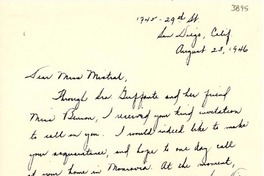 3895
1745 - 29th St.
San Diego, Calif.
August 23, 1946
Dear Miss Mistral,
Through Sra and her friend
Miss I received your kind invitation
to call on you. I would indeed like to make
your acquaintance, and hope to one day call
at your home in Monrovia. At the moment,